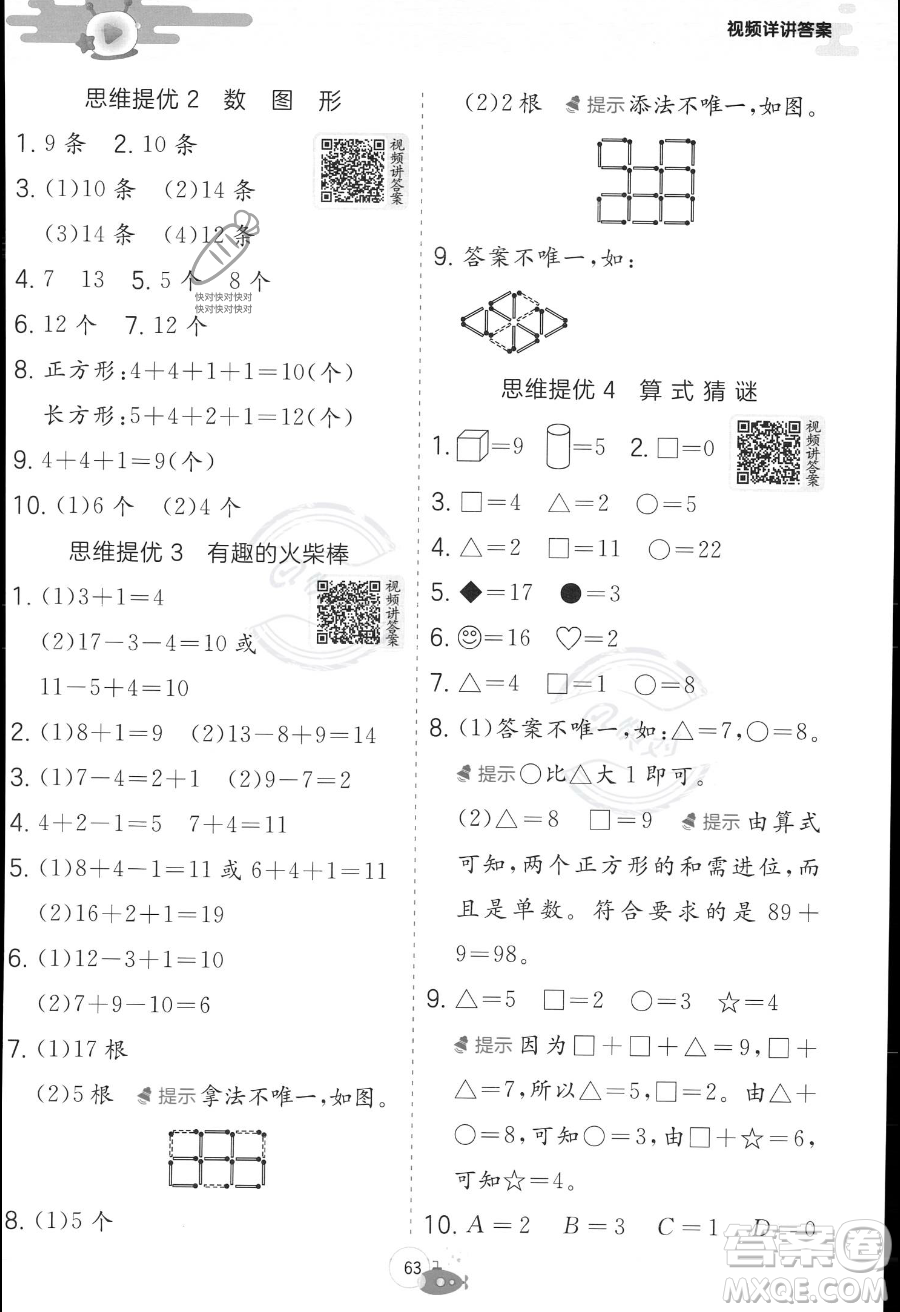 视频详讲答案
思维提优2 数图形
1. 9条 2. 10条
3. (1)10条 (2)14条
(3)14条 (4)12条
4. 7 13 5. 5个 8个
6. 12个 7. 12个
8. 正方形:4+4+1+1=10(个)
长方形:5+4+2+1=12(个)
9. 4+4+1=9(个)
10. (1)6个 (2)4个
视频讲答案
快对快对快对
快对快对快对
思维提优3 有趣的火柴棒
1. (1)3+1=4
(2)17-3-4=10或
11-5+4=10
视频讲答案
2. (1)8+1=9 (2)13-8+9=14
3. (1)7-4=2+1 (2)9-7=2
4. 4+2-1=5 7+4=11
5. (1)8+4-1=11或6+4+1=11
(2)16+2+1=19
6. (1)12-3+1=10
(2)7+9-10=6
7. (1)17根
(2)5根 提示 拿法不唯一,如图。
8. (1)5个
(2)2根 提示 添法不唯一,如图。
9. 答案不唯一,如:
思维提优4 算式猜谜
1. =9 =5 2. □=0
视频讲答案
3. □=4 △=2 ○=5
4. △=2 □=11 ○=22
5. ◆=17 ●=3
6. ☺=16 ♡=2
7. △=4 □=1 ○=8
8. (1)答案不唯一,如:△=7,○=8。
提示 ○比△大1即可。
(2)△=8 □=9 提示 由算式
可知,两个正方形的和需进位,而
且是单数。符合要求的是89+
9=98。
9. △=5 □=2 ○=3 ☆=4
提示 因为□+□+△=9,□+
△=7,所以△=5,□=2。由△+
○=8,可知○=3,由□+☆=6,
可知☆=4。
10. A=2 B=3 C=1 D=0
63
答案圈
MXQE.COM